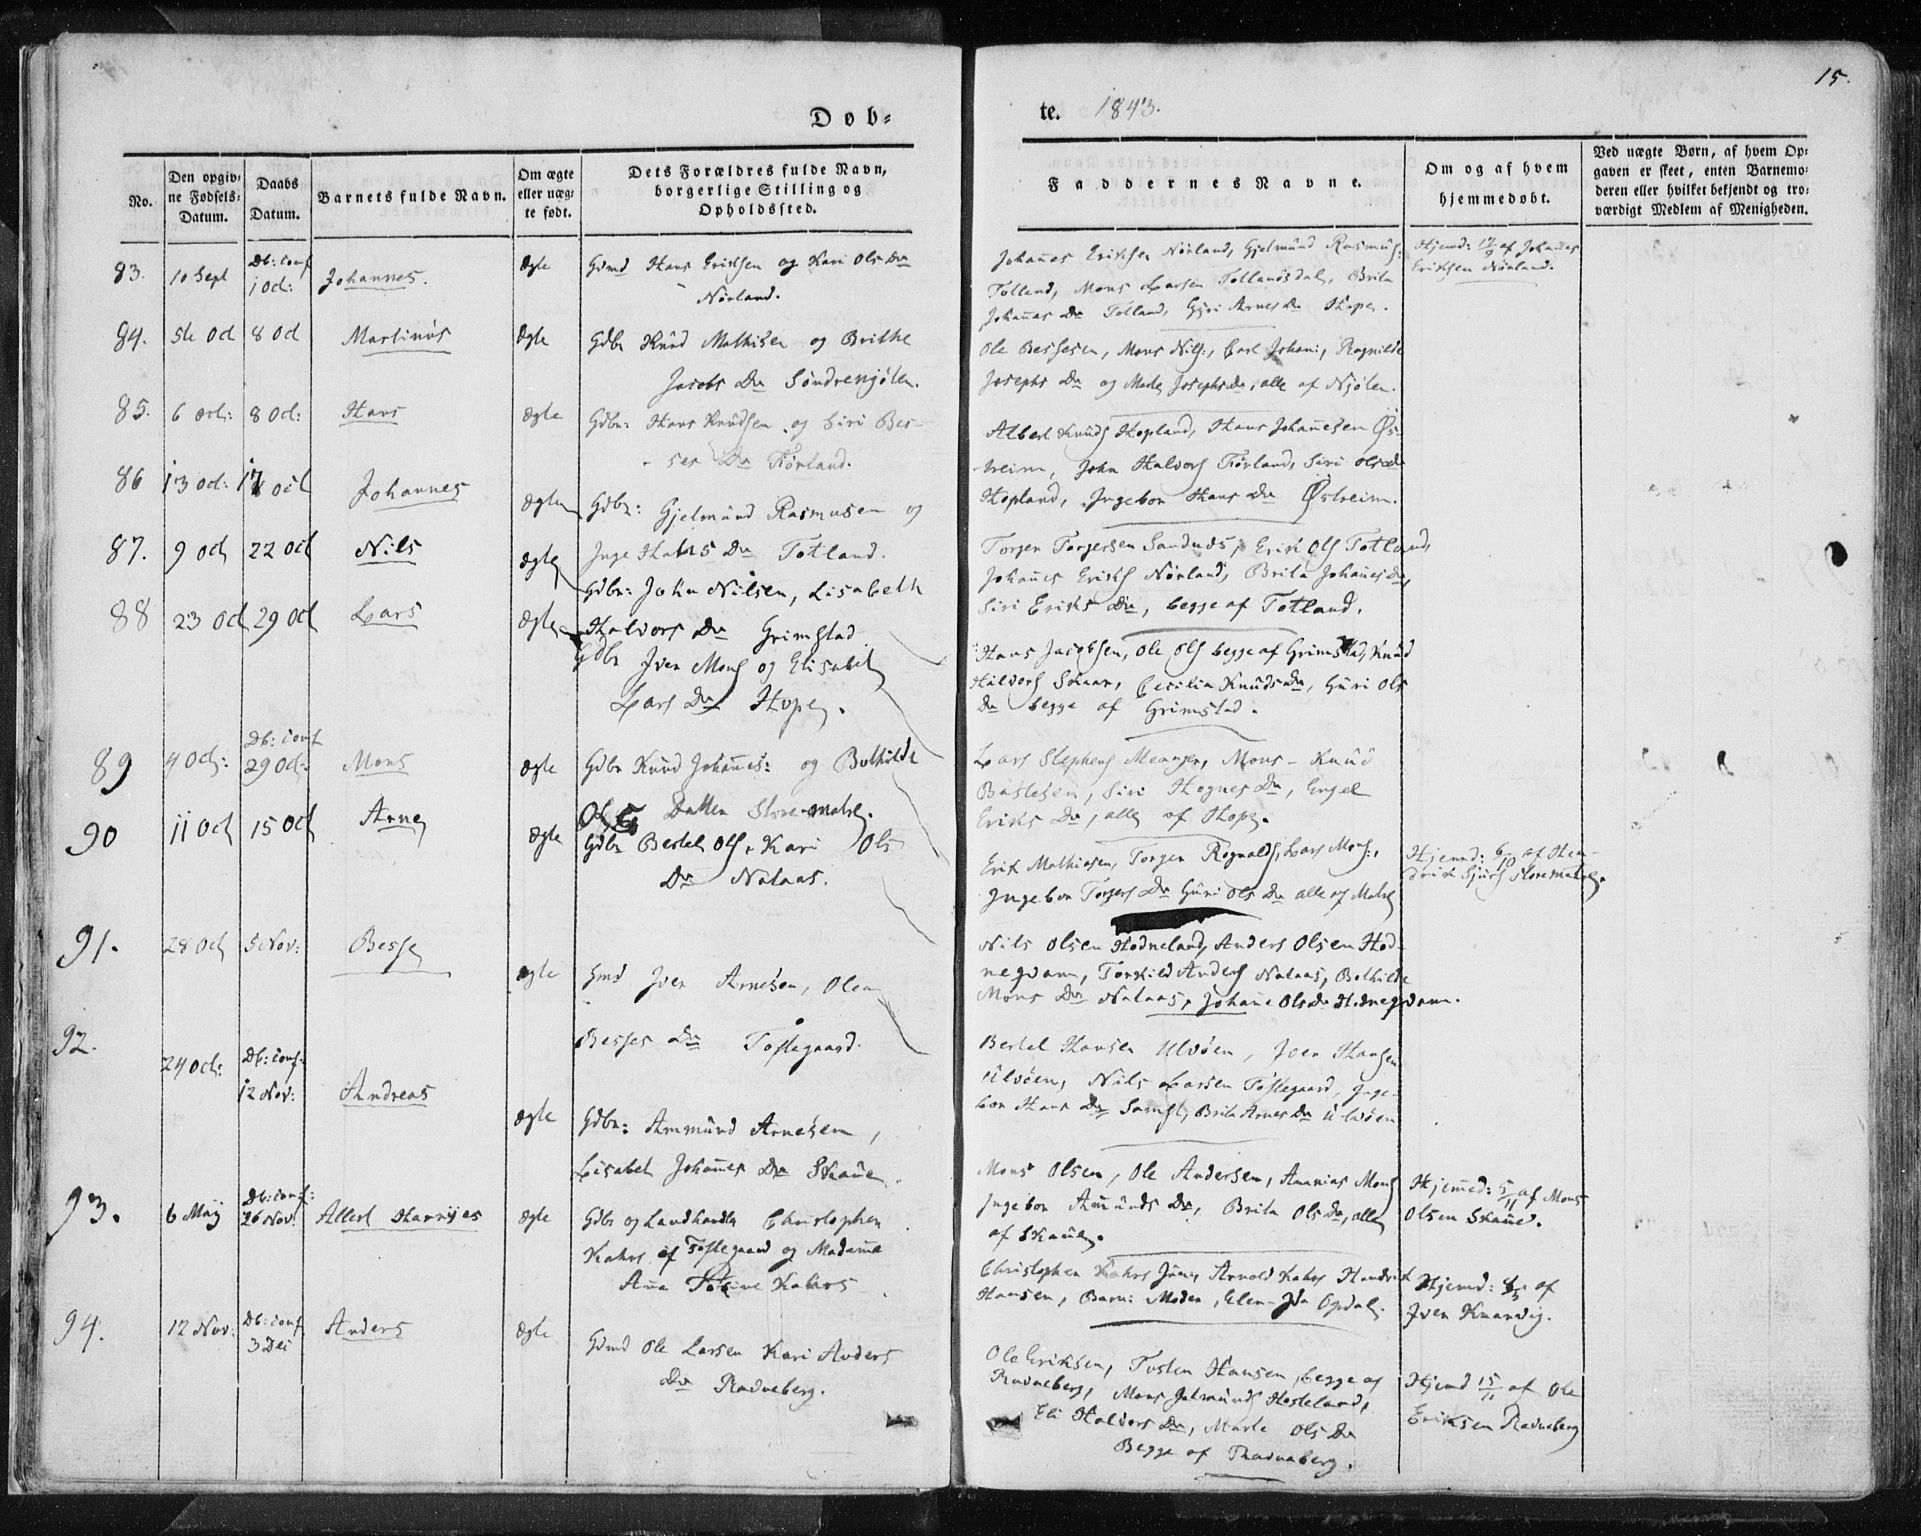 15.
Døb=
te. 1843.
No.
Den opgiv=
ne Fødsels=
Datum.
Daabs
Datum.
Barnets fulde Navn.
Om ægte
eller uæg=
te født.
Dets Forældres fulde Navn,
borgerlige Stilling og
Opholdssted.
Faddernes Navne.
Om og af hvem
hjemmedøbt.
Ved uægte Børn, af hvem Op=
gaven er skeet, enten Barnemo=
deren eller hvilket bekjendt og tro=
værdigt Medlem af Menigheden.
83. 10 Sept Db: conf 1 Oct: Johannes. Ægte
Gdmd Hans Eriksen og Kari Ols Dr
Nørland.
Johañes Eriksen Nørland, Gjelmund Rasmus:
Totland, Mons Larsen Tollandsdal, Brita
Johañes Dr Totland, Gjøri Arnes Dr Hope.
Hjemd: 17/9 af Johañes
Eriksen Nørland.
84. 5te Oct 8 Oct Martinus Ægte
Gdbr Knud Mathisen og Brithe
Jacobs Dr Søndrenjølen.
Ole Bessesen, Mons Nils:, Carl Johan:, Ragnilde
Josephs Dr og Marte Josephs Dr, alle af Njølen.
85. 6 Oct: 8 Oct: Hans Ægte
Gdbr: Hans Knudsen og Siri Bes-
ses Dr Tørland.
Albert Knuds Hopland, Hans Johañesen Øs-
treim, John Halvors Tørland, Siri Ols Dr
Hopland, Ingebor Hans Dr Østreim.
86 13 Oct: 17 Oct Johannes Ægte
Gdbr: Gjelmund Rasmusen og
Inge Hans Dr Totland.
Torger Torgersen Sandnes, Erik Ols Totland,
Johañes Eriks Nørland, Brita Johañes Dr,
Siri Eriks Dr, begge af Totland.
87. 9 Oct 22 Oct Nils Ægte
Gdbr: John Nilsen, Lisabeth
Halvors Dr Grimstad
Hans Jacobsen, Ole Ols begge af Grimstad, Knud
Halvors Skaar, Cecilia Knuds Dr, Guri Ols
Dr begge af Grimstad.
88 23 Oct 29 Oct Lars Ægte
Gdbr Iver Mons og Elisabet
Lars Dr Hope.
Lars Stephens Meanger, Mons - Knud
Baslesen, Siri Hognes Dr, Engel
Eriks Dr, alle af Hope.
89 4 Oct: Db: conf 29 Oct: Mons Ægte
Gdbr Knud Johañes: og Bothilde
Ols Datter Storematre.
Erik Mathiasen, Torger Rognalds, Lars Mons:,
Ingebor Torgers Dr Guri Ols Dr alle af Matre
Hjemd: 6/10 af Hen-
drik Sjurs Storematre.
90 11 Oct 15 Oct Arne Ægte
Gdbr Bertel Ols, Kari Ols
Dr Nataas.
Nils Olsen Hodneland, Anders Olsen Hod-
negdam, Torkild Anders Nataas, Bothilde
Mons Dr Nataas, Johañe Ols Dr Hodnegdam.
91. 28 Oct 5 Nov: Besse Ægte
Gmd Iver Arnesen, Olea
Besses Dr Toftegaard.
Bertel Hansen Ulvøen, Iver Hansen
Ulvøen, Nils Larsen Toftegaard, Inge-
bor Hans Dr, Brita Arnes Dr Ulvøen
92. 24 Oct: Db: conf: 12 Nov: Andreas Ægte
Gdbr: Ammund Arnesen,
Lisabet Johañes Dr Skaue.
Mons Olsen, Ole Andersen, Ananias Mons
Ingebor Amunds Dr, Brita Ols Dr, alle
af Skaue.
Hjemd: 5/11 af Mons
Olsen Skaue.
93. 6 Maj Db: conf: 26 Nov: Allert Harrijes Ægte
Gdbr og Landhandler Christopher
Kahrs af Toftegaard og Madame
Añe Kahrs
Christopher Kahrs Jun:, Arnold Kahrs Hendrik
Hansen, Barn: Moder, Elen-Ida Opdal.
Hjemd: af
Iver Knarvig.
94. 12 Nov: Db: conf. 3 Dec Anders Ægte
Gdmd Ole Larsen Kari Anders
Dr Radneberg.
Ole Eriksen, Tosten Hansen, begge af
Radneberg, Mons Jalmunds Hosteland,
Eli Halvors Dr, Marte Ols Dr
Begge af Radneberg.
Hjemd 15/11 af Ole
Eriksen Radneberg